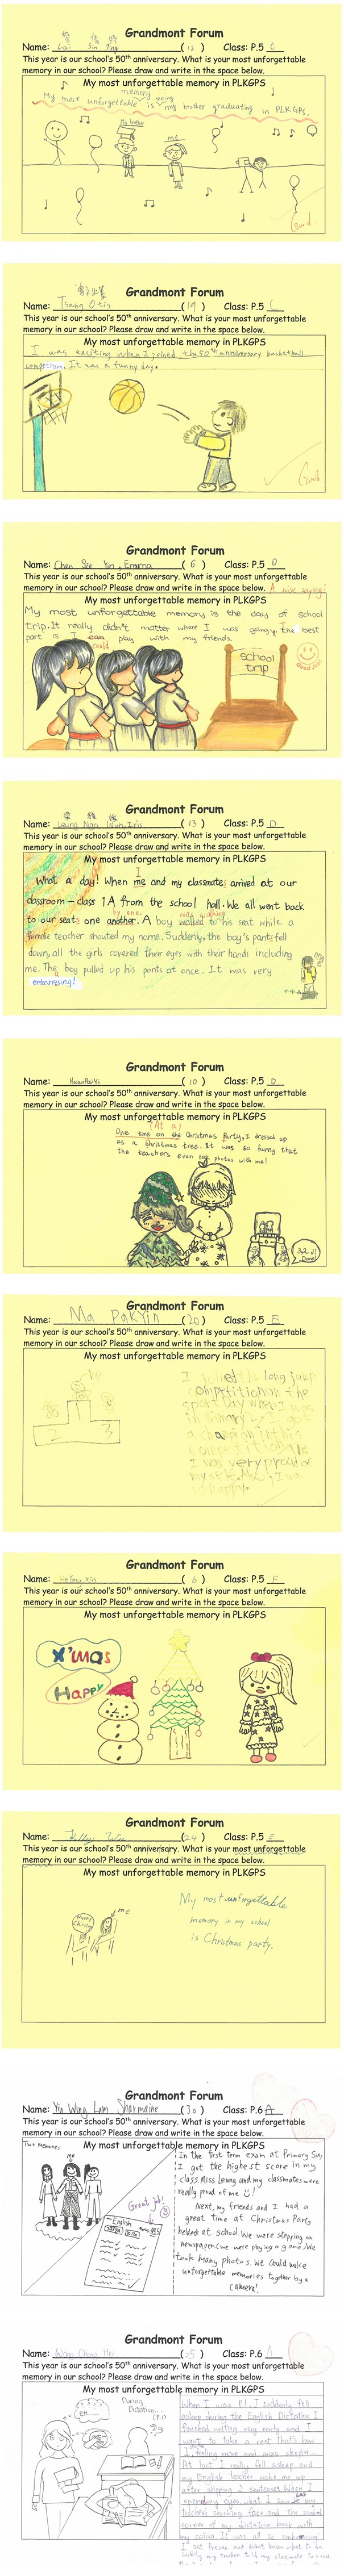 Grandmont Forum
Name: Lai Sin Ting (12) Class: P.5 C
This year is our school's 50th anniversary. What is your most unforgettable
memory in our school? Please draw and write in the space below.
My most unforgettable memory in PLKGPS
memory seeing
My most unforgettable is my brother graduating in PLKGPS.
My brother
me
Good
Grandmont Forum
Name: Tsang Otis (19) Class: P.5 C
This year is our school's 50th anniversary. What is your most unforgettable
memory in our school? Please draw and write in the space below.
My most unforgettable memory in PLKGPS
I was exciting when I joined the 50th anniversary basketball
competition. It was a funny day.
Good
Grandmont Forum
Name: Chan Sze Yin, Emma (6) Class: P.5 D
This year is our school's 50th anniversary. What is your most unforgettable
memory in our school? Please draw and write in the space below. A nice
My most unforgettable memory in PLKGPS
My most unforgettable memory is the day of school
trip. It really didn't matter where I was going, the best
part is I can play with my friends.
could
school
trip
Good Job!
Grandmont Forum
Name: Leung Nga Wun, Iris (13) Class: P.5 D
This year is our school's 50th anniversary. What is your most unforgettable
memory in our school? Please draw and write in the space below.
My most unforgettable memory in PLKGPS
I
What a day! When me and my classmates arrived at our
classroom - class 1A from the school hall. We all went back
to our seats one another. A boy walked to his seat while a
by one was walking
female teacher shouted my name. Suddenly, the boy's pants fell
down, all the girls covered their eyes with their hands including
me. The boy pulled up his pants at once. It was very
embarrassing!
Grandmont Forum
Name: (10) Class: P.5 D
This year is our school's 50th anniversary. What is your most unforgettable
memory in our school? Please draw and write in the space below.
My most unforgettable memory in PLKGPS
(At a)
One time on the Christmas Party, I dressed up
as a Christmas tree. It was so funny that
the teachers even took photos with me!
3,2,1!
Grandmont Forum
Name: Ma Pak Yin (20) Class: P.5 E
This year is our school's 50th anniversary. What is your most unforgettable
memory in our school? Please draw and write in the space below.
My most unforgettable memory in PLKGPS
me
2 1 3
I joined the long jump
competition on the
sport day when I was
in primary
a champion in this
competition.
I was very proud of
myself. I was
so happy.
Grandmont Forum
Name: (6) Class: P.5 F
This year is our school's 50th anniversary. What is your most unforgettable
memory in our school? Please draw and write in the space below.
My most unforgettable memory in PLKGPS
X'mas
Happy
Grandmont Forum
Name: (24) Class: P.5 E
This year is our school's 50th anniversary. What is your most unforgettable
memory in our school? Please draw and write in the space below.
My most unforgettable memory in PLKGPS
me
My most unforgettable
memory in my school
is Christmas party.
Grandmont Forum
Name: Yin Wing Lam Sharmaine (30) Class: P.6 A
This year is our school's 50th anniversary. What is your most unforgettable
memory in our school? Please draw and write in the space below.
My most unforgettable memory in PLKGPS
Two memories
me
Great job!
English
In the first term exam at Primary Six,
I got the highest score in my
class. Miss Leung and my classmates were
really proud of me
Next, my friends and I had a
great time at Christmas Party
held at school. We were stepping on
newspaper, we were playing a game. We
took many photos. We could make
unforgettable memories together by a
camera!
Grandmont Forum
Name: Wong Ching Ho (25) Class: P.6 A
This year is our school's 50th anniversary. What is your most unforgettable
memory in our school? Please draw and write in the space below.
My most unforgettable memory in PLKGPS
During
Dictation...
When I was P.1, I suddenly fell
asleep during the English Dictation. I
finished writing very early and I
want to take a rest. That's how
I feeling more and more sleepy...
At last I really fell asleep and
my English teacher woke me up
after skipping 2 sentence. When I
opened my eyes, what I saw is my
teacher's shocking face and the
corner of my dictation book with
my saliva. It was all so embarrassing
my teacher told my classmate to